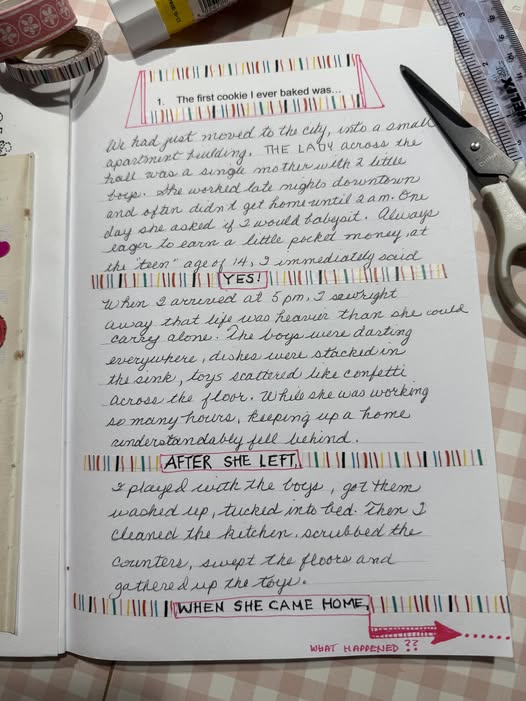 1. The first cookie I ever baked was...
We had just moved to the city, into a small
apartment building. THE LADY across the
hall was a single mother with 2 little
boys. She worked late nights downtown
and often didn't get home until 2 am. One
day she asked if I would babysit. Always
eager to earn a little pocket money, at
the "teen" age of 14, I immediately said
YES!
When I arrived at 5 pm, I saw right
away that life was heavier than she could
carry alone. The boys were darting
everywhere, dishes were stacked in
the sink, toys scattered like confetti
across the floor. While she was working
so many hours, keeping up a home
understandably fell behind.
AFTER SHE LEFT,
I played with the boys, got them
washed up, tucked into bed. Then I
cleaned the kitchen, scrubbed the
counters, swept the floors and
gathered up the toys.
WHEN SHE CAME HOME,
WHAT HAPPENED ??
HELIX